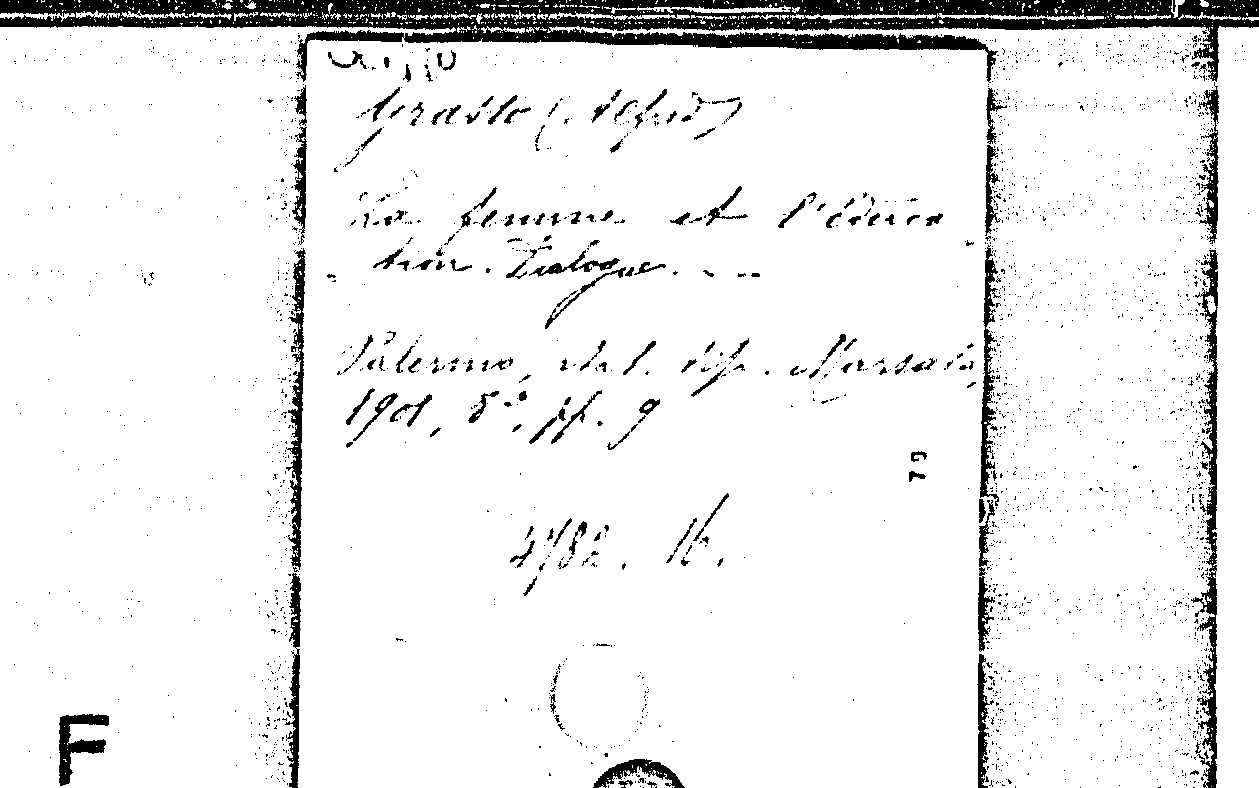 Grasso (Alfred)
La femme et l'éduca
tion. Dialogue. - --
Palermo, stab. tip. Marsala,
1901, 8°, pp. 9
79
4782. 16.
F